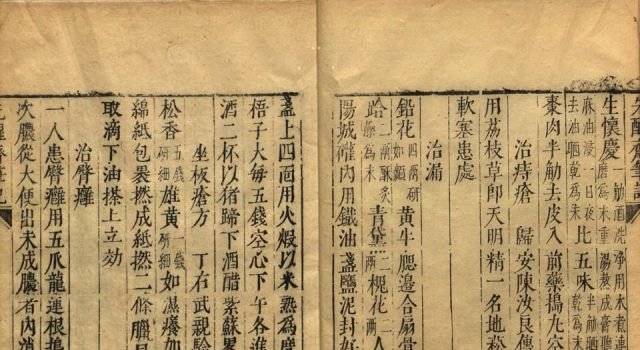 生懷慶 一觔酒洗淨用水煮連
磨爲末重湯熬成膏
麻油浸一日夜去油晒乾爲末 比五味 半觔晒乾爲末
棗肉半觔去皮入前藥搗九空
治痔瘡 歸安陳汝良傳
用荔枝草即天明精一名地菘
軟塞患處
治漏
鉛花 四兩研如麵 黃牛腮邊合扇骨
青黛 二兩 槐花 二兩
陽城礶內用鐵油盞鹽泥封好
盞上四面用火煅以米熟爲度
梧子大每五錢空心下午各進
酒二杯以猪蹄下酒醋紫蘇
坐板瘡方 丁右武親驗
松香 五錢研細 雄黃 一錢研細 如濕癢加
綿紙包裹撚成紙撚二條臘
取滴下油搽上立効
治臂癰
一人患臂癰用五爪龍連根搗
次膿從大便出未成膿者內消
先醒齋筆記